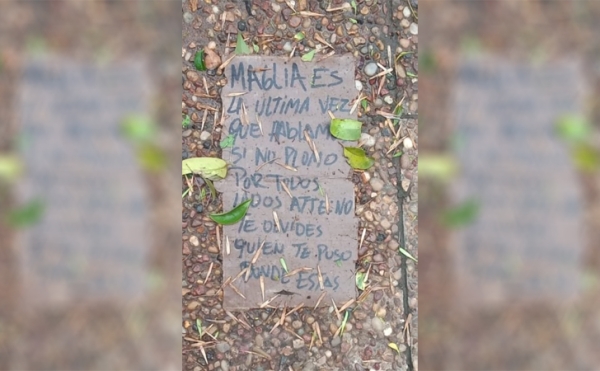 MAGLIA ES
LA ULTIMA VEZ
QUE HABLAM
SI NO PLOMO
POR TODOS
LADOS ATTE: NO
TE OLVIDES
QUIEN TE PUSO
DONDE ESTAS